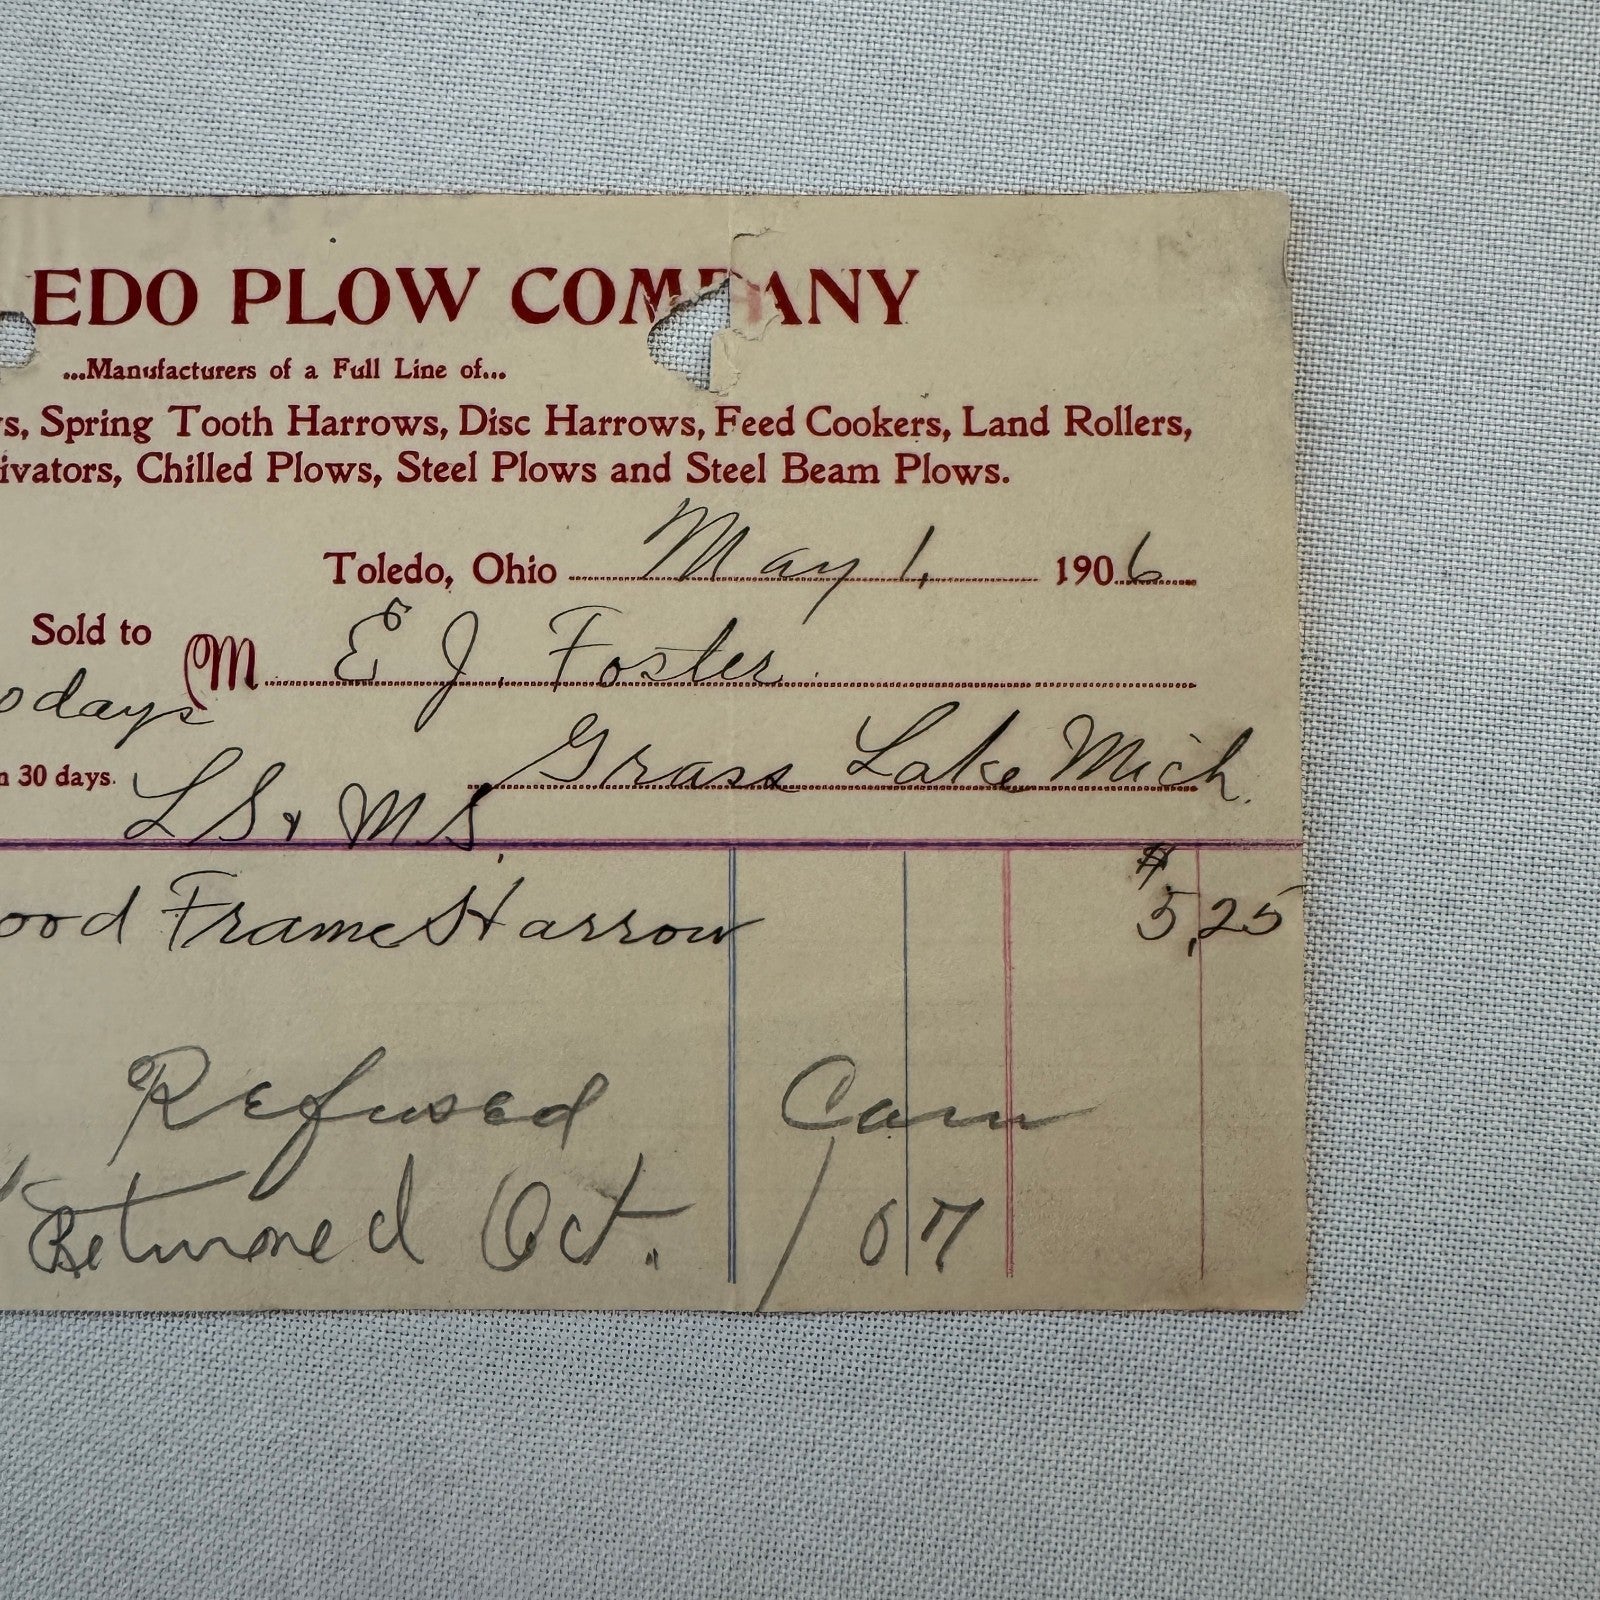 EDO PLOW COMPANY
...Manufacturers of a Full Line of...
s, Spring Tooth Harrows, Disc Harrows, Feed Cookers, Land Rollers,
ivators, Chilled Plows, Steel Plows and Steel Beam Plows.
Toledo, Ohio May 1, 1906
Sold to M E J. Foster
0 days
Grass Lake Mich.
n 30 days.
L S & M S.
ood Frame Harrow $5,25
Refused
Returned Oct. / 07